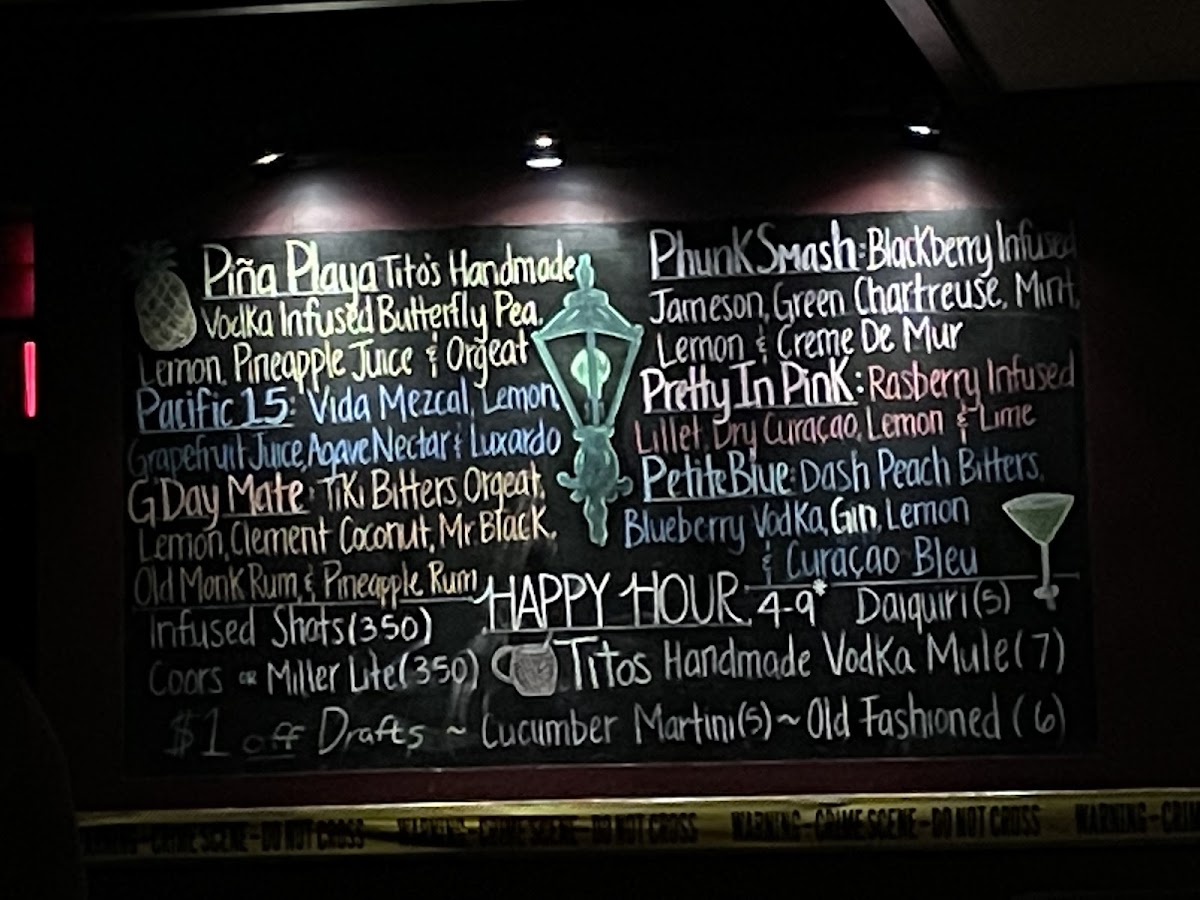 Piña Playa Tito's Handmade
Vodka Infused Butterfly Pea,
Lemon, Pineapple Juice & Orgeat
Pacific 15: Vida Mezcal, Lemon,
Grapefruit Juice, Agave Nectar & Luxardo
G Day Mate: Tiki Bitters, Orgeat,
Lemon, Clement Coconut, Mr Black,
Old Monk Rum, & Pineapple Rum
Phunk Smash: Blackberry Infused
Jameson, Green Chartreuse, Mint,
Lemon & Creme De Mur
Pretty In Pink: Rasberry Infused
Lillet, Dry Curaçao, Lemon & Lime
Petite Blue: Dash Peach Bitters,
Blueberry Vodka, Gin, Lemon
& Curaçao Bleu
HAPPY HOUR 4-9* Daiquiri (5)
Infused Shots (350)
Coors or Miller Lite (350) Titos Handmade Vodka Mule (7)
$1 off Drafts ~ Cucumber Martini (5) ~ Old Fashioned (6)
WARNING - CRIME SCENE - DO NOT CROSS WARNING - CRIME SCENE - DO NOT CROSS WARNING - CRIME SCENE - DO NOT CROSS WARNING - CRI